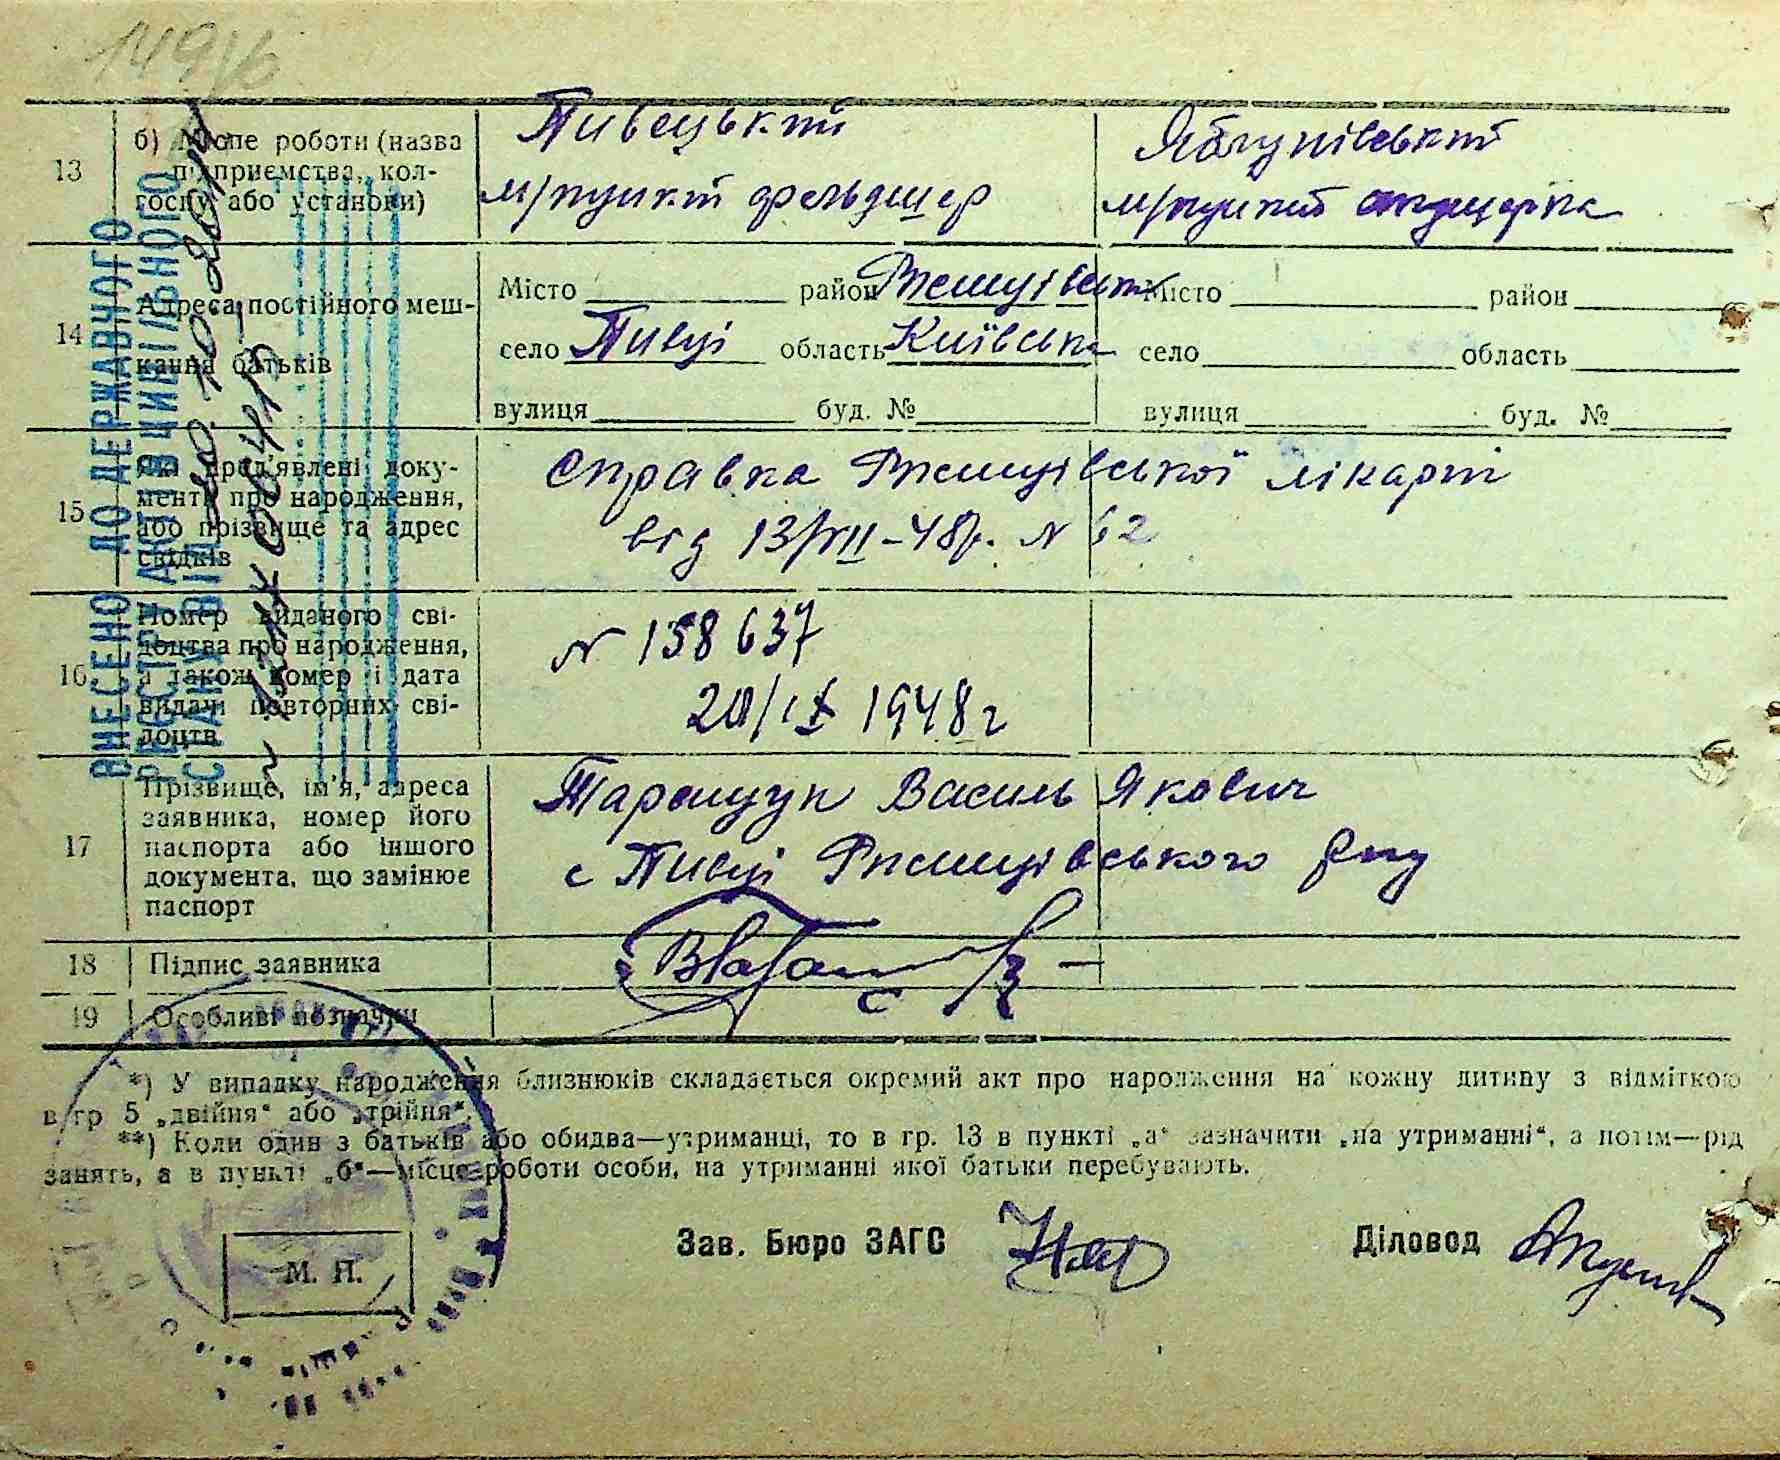 149/6
13
б) Місце роботи (назва
підприємства, кол-
госпу або установи)
Пивецький
м/пункт фельдшер
Яблунівський
м/пункт акушерка
14
Адреса постійного меш-
кання батьків
Місто район Ржищівськ
село Пивці область Київськ
вулиця буд. №
Місто район
село область
вулиця буд. №
15
Які пред'явлені доку-
менти про народження,
або прізвище та адрес
свідків
Справка Ржищівської лікарні
від 13/VII-48р. N 62
16.
Номер виданого сві-
доцтва про народження,
а також номер і дата
видачі повторних сві-
доцтв
N 158637
20/IX 1948 г
17
Прізвище, ім'я, адреса
заявника, номер його
паспорта або іншого
документа, що замінює
паспорт
Таращук Василь Якович
с Пивці Ржищівського р-ну
18
Підпис заявника
19
Особливі позначки
ВНЕСЕНО ДО ДЕРЖАВНОГО
РЕЄСТРУ АКТІВ ЦИВІЛЬНОГО
СТАНУ
*) У випадку народження близнюків складається окремий акт про народження на кожну дитину з відміткою
в гр 5 „двійня“ або „трійня“.
**) Коли один з батьків або обидва—утриманці, то в гр. 13 в пункті „а“ зазначити „на утриманні“, а потім—рід
занять, а в пункті „б“—місце роботи особи, на утриманні якої батьки перебувають.
Зав. Бюро ЗАГС
Діловод
М. П.